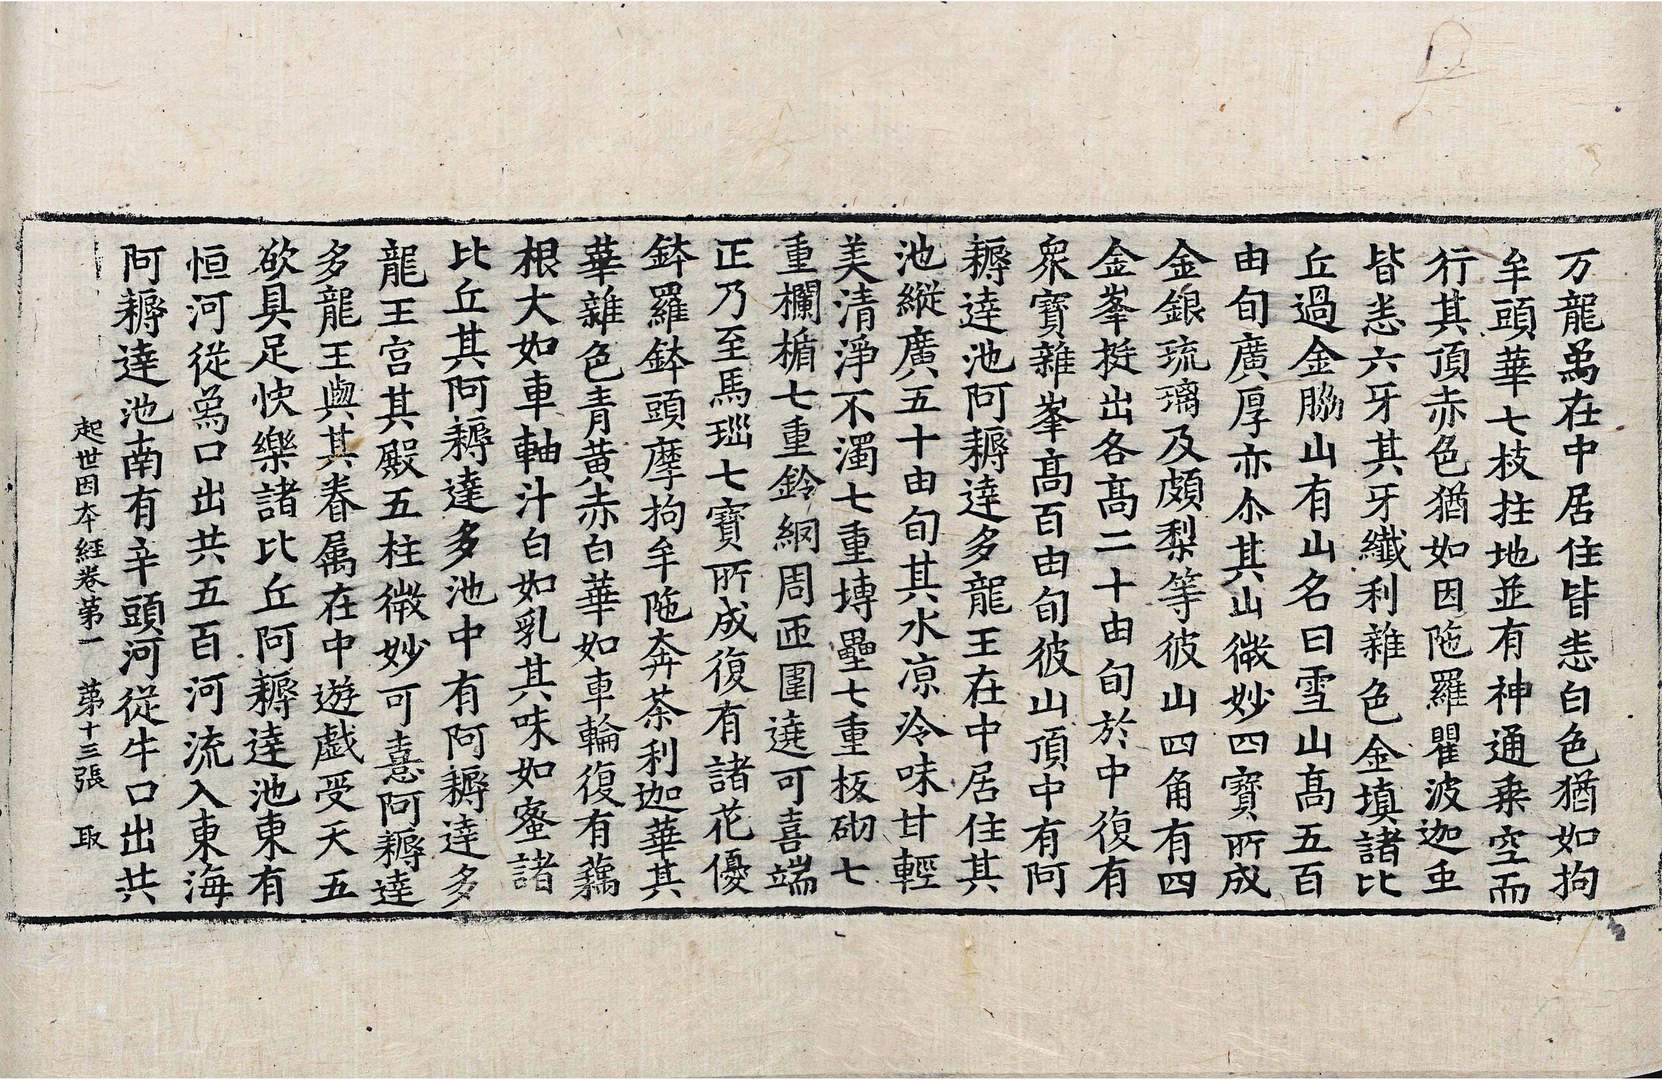 万龍象在中居住皆悉白色猶如拘
牟頭華七枝拄地並有神通乗空而
行其頂赤色猶如因陁羅瞿波迦虫
皆悉六牙其牙纖利雜色金填諸比
丘過金脇山有山名曰雪山髙五百
由旬廣厚亦尒其山微妙四寳所成
金銀琉璃及頗梨等彼山四角有四
金峯挺出各髙二十由旬於中復有
衆寳雜峯髙百由旬彼山頂中有阿
耨達池阿耨達多龍王在中居住其
池縱廣五十由旬其水凉冷味甘輕
美清淨不濁七重塼壘七重板砌七
重欄楯七重鈴網周帀圍遶可喜端
正乃至馬瑙七寳所成復有諸花優
鉢羅鉢頭摩拘牟陁奔荼利迦華其
華雜色青黄赤白華如車輪復有藕
根大如車軸汁白如乳其味如蜜諸
比丘其阿耨達多池中有阿耨達多
龍王宫其殿五柱微妙可憙阿耨達
多龍王與其眷属在中遊戱受天五
欲具足快樂諸比丘阿耨達池東有
恒河從象口出共五百河流入東海
阿耨達池南有辛頭河從牛口出共
起世因夲經卷第一 第十三張 取